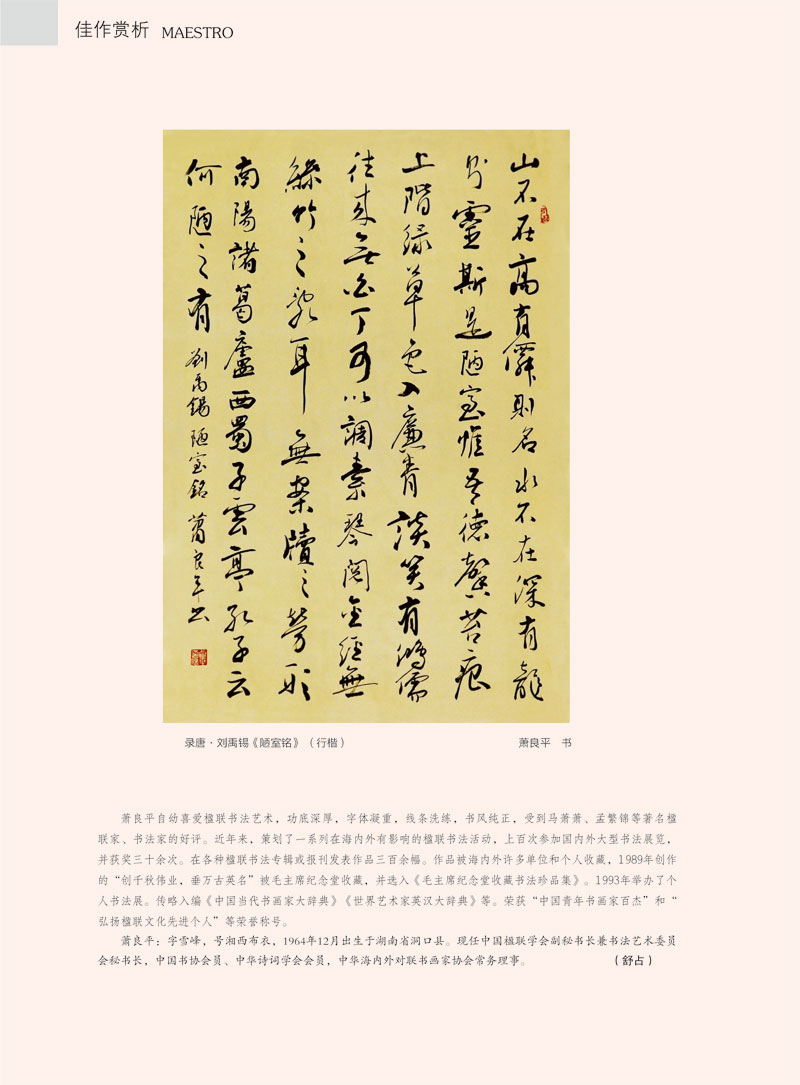 佳作赏析 MAESTRO
山不在高有僊則名水不在深有龍
則靈斯是陋室惟吾德馨苔痕
上階緑草色入簾青談笑有鴻儒
往来無白丁可以調素琴閲金經無
絲竹之亂耳無案牘之勞形
南陽諸葛廬西蜀子雲亭孔子云
何陋之有 劉禹錫陋室銘 蕭良平书
录唐·刘禹锡《陋室铭》（行楷） 萧良平 书
萧良平自幼喜爱楹联书法艺术，功底深厚，字体凝重，线条洗练，书风纯正，受到马萧萧、孟繁锦等著名楹
联家、书法家的好评。近年来，策划了一系列在海内外有影响的楹联书法活动，上百次参加国内外大型书法展览，
并获奖三十余次。在各种楹联书法专辑或报刊发表作品三百余幅。作品被海内外许多单位和个人收藏，1989年创作
的“创千秋伟业，垂万古英名”被毛主席纪念堂收藏，并选入《毛主席纪念堂收藏书法珍品集》。1993年举办了个
人书法展。传略入编《中国当代书画家大辞典》《世界艺术家英汉大辞典》等。荣获“中国青年书画家百杰”和“
弘扬楹联文化先进个人”等荣誉称号。
萧良平：字雪峰，号湘西布衣，1964年12月出生于湖南省洞口县。现任中国楹联学会副秘书长兼书法艺术委员
会秘书长，中国书协会员、中华诗词学会会员，中华海内外对联书画家协会常务理事。 （舒占）